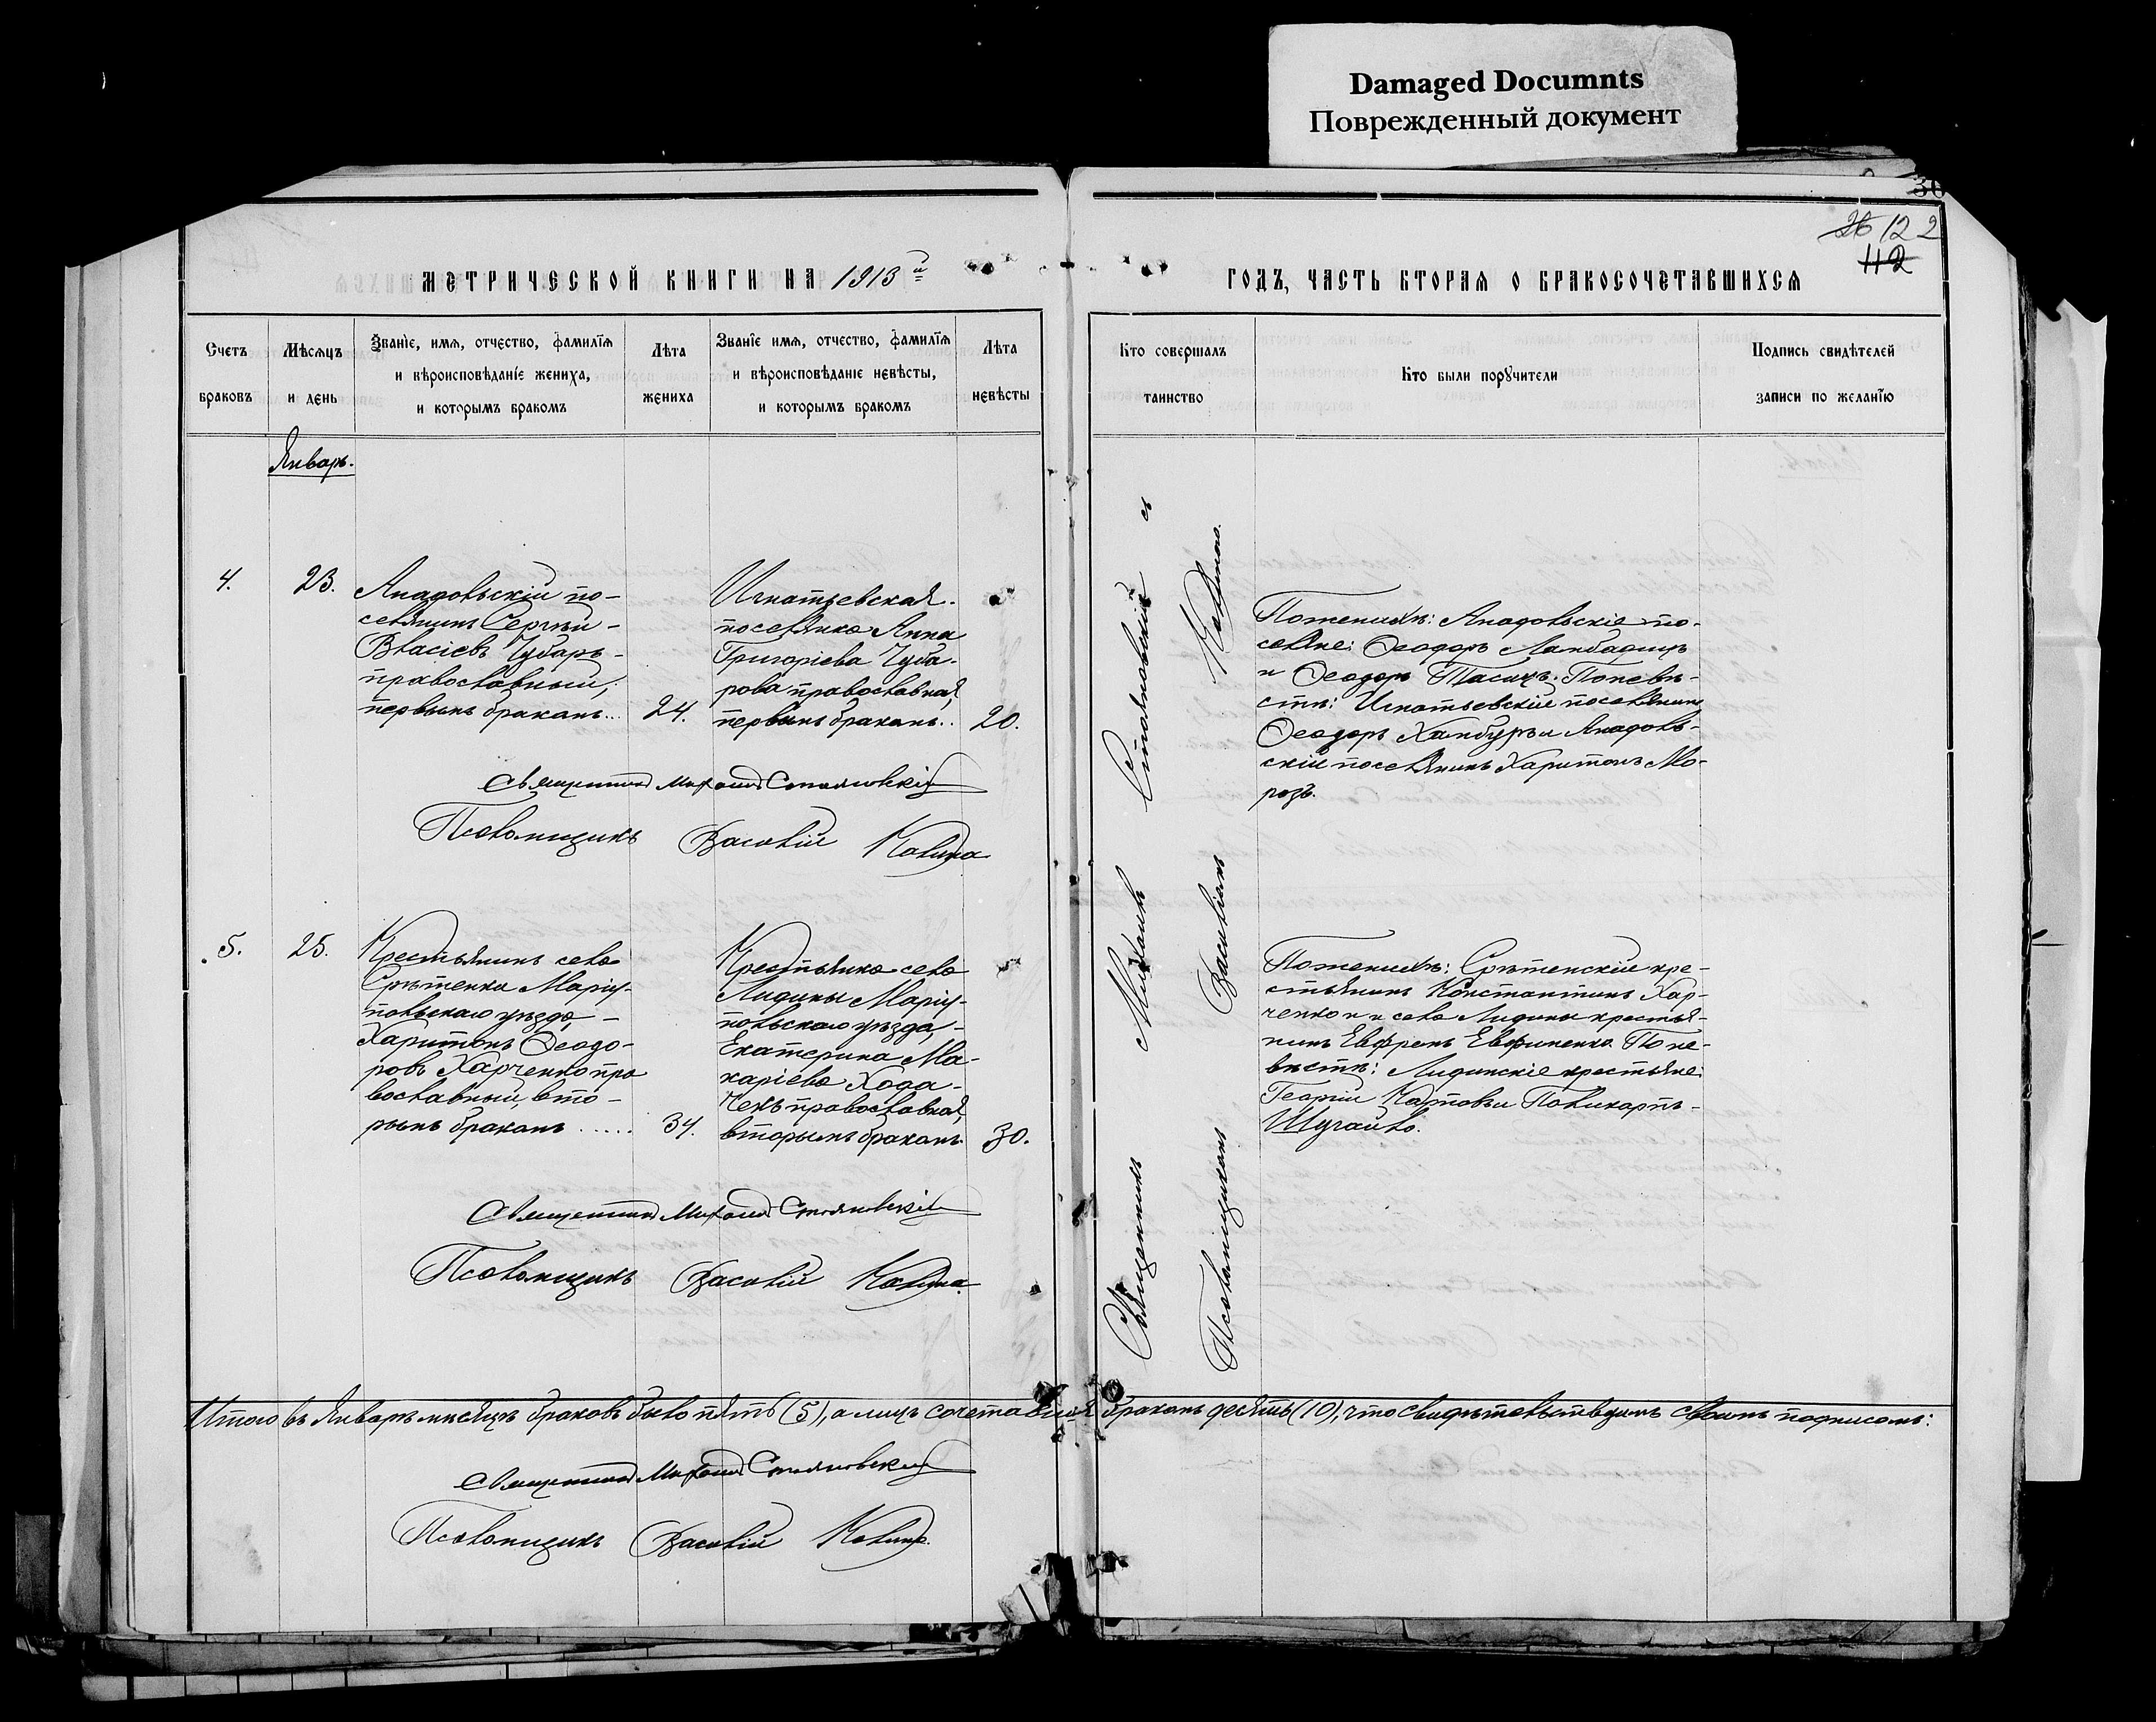 Damaged Documnts
Поврежденный документ
30
26 12 2
112
МЕТРИЧЕСКОЙ КНИГИ НА 1913й
ГОДЪ, ЧАСТЬ ВТОРАЯ О БРАКОСОЧЕТАВШИХСЯ
Счетъ браковъ
Мѣсяцъ и день
Званіе, имя, отчество, фамилія
и вѣроисповѣданіе жениха,
и которымъ бракомъ
Лѣта жениха
Званіе имя, отчество, фамилія
и вѣроисповѣданіе невѣсты,
и которымъ бракомъ
Лѣта невѣсты
Кто совершалъ таинство
Кто были поручители
Подпись свидѣтелей
записи по желанію
Январь.
4.
23.
Анадольскій по-
селянинъ Сергѣй
Власіевъ Чубарь
православный,
первымъ бракомъ...
24.
Игнатьевская
поселянка Анна
Григоріева Чуба-
рова православная,
первымъ бракомъ..
20.
Священникъ Михаилъ Стояновскій съ
Псаломщикомъ Василіемъ Калина.
По женихѣ: Анадольскіе по-
селяне: Ѳеодоръ
и Ѳеодоръ Тасицъ. По невѣ-
стѣ: Игнатьевскій поселянинъ
Ѳеодоръ Хамбуръ и Анадоль-
скій поселянинъ Харитонъ Мо-
розъ.
Священникъ Михаилъ Стояновскій
Псаломщикъ Василій Калина
5.
25.
Крестьянинъ села
Срѣтенки Маріу-
польскаго уѣзда,
Харитонъ Ѳеодо-
ровъ Харченко пра
вославный, вто-
рымъ бракомъ .....
34.
Крестьянка села
Лидины Маріу-
польскаго уѣзда,
Екатерина Ма-
каріева Хода-
чекъ православная,
вторымъ бракомъ.
30.
По женихѣ: Срѣтенскіе кре-
стьянинъ Константинъ Хар-
ченко и села Лидины крестья-
нинъ Евфремъ Евфименко. По не-
вѣстѣ: Лидинскіе крестьяне:
Георгій и Поликарпъ
Шугайло.
Священникъ Михаилъ Стояновскій
Псаломщикъ Василій Калина.
Итого въ Январѣ мѣсяцѣ браковъ было пять (5), а лицъ сочетавшихся бракомъ десять (10), что свидѣтельствуемъ своимъ подписомъ:
Священникъ Михаилъ Стояновскій
Псаломщикъ Василій Калина.